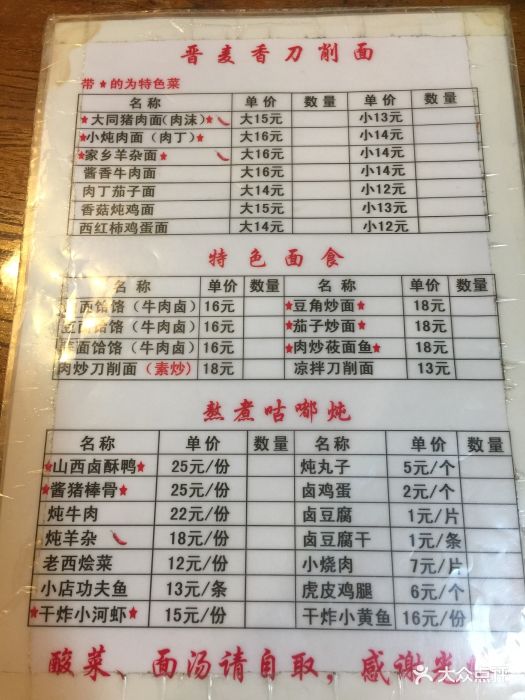 晋麦香刀削面
带★的为特色菜
名称 单价 数量 单价 数量
★大同猪肉面(肉沫)★ 大15元 小13元
★小炖肉面(肉丁)★ 大16元 小14元
★家乡羊杂面★ 大16元 小14元
酱香牛肉面 大16元 小14元
肉丁茄子面 大14元 小12元
香菇炖鸡面 大15元 小13元
西红柿鸡蛋面 大14元 小12元
特色面食
名称 单价 数量 名称 单价 数量
面饸饹(牛肉卤) 16元 ★豆角炒面★ 18元
面饸饹(牛肉卤) 16元 ★茄子炒面★ 18元
面饸饹(牛肉卤) 16元 ★肉炒莜面鱼★ 18元
肉炒刀削面(素炒) 18元 凉拌刀削面 13元
熬煮咕嘟炖
名称 单价 数量 名称 单价 数量
★山西卤酥鸭★ 25元/份 炖丸子 5元/个
★酱猪棒骨★ 25元/份 卤鸡蛋 2元/个
炖牛肉 22元/份 卤豆腐 1元/片
炖羊杂 18元/份 卤豆腐干 1元/条
老西烩菜 12元/份 小烧肉 7元/片
小店功夫鱼 13元/条 虎皮鸡腿 6元/个
★干炸小河虾★ 15元/份 干炸小黄鱼 16元/份
酸菜、面汤请自取,感谢
大众点评